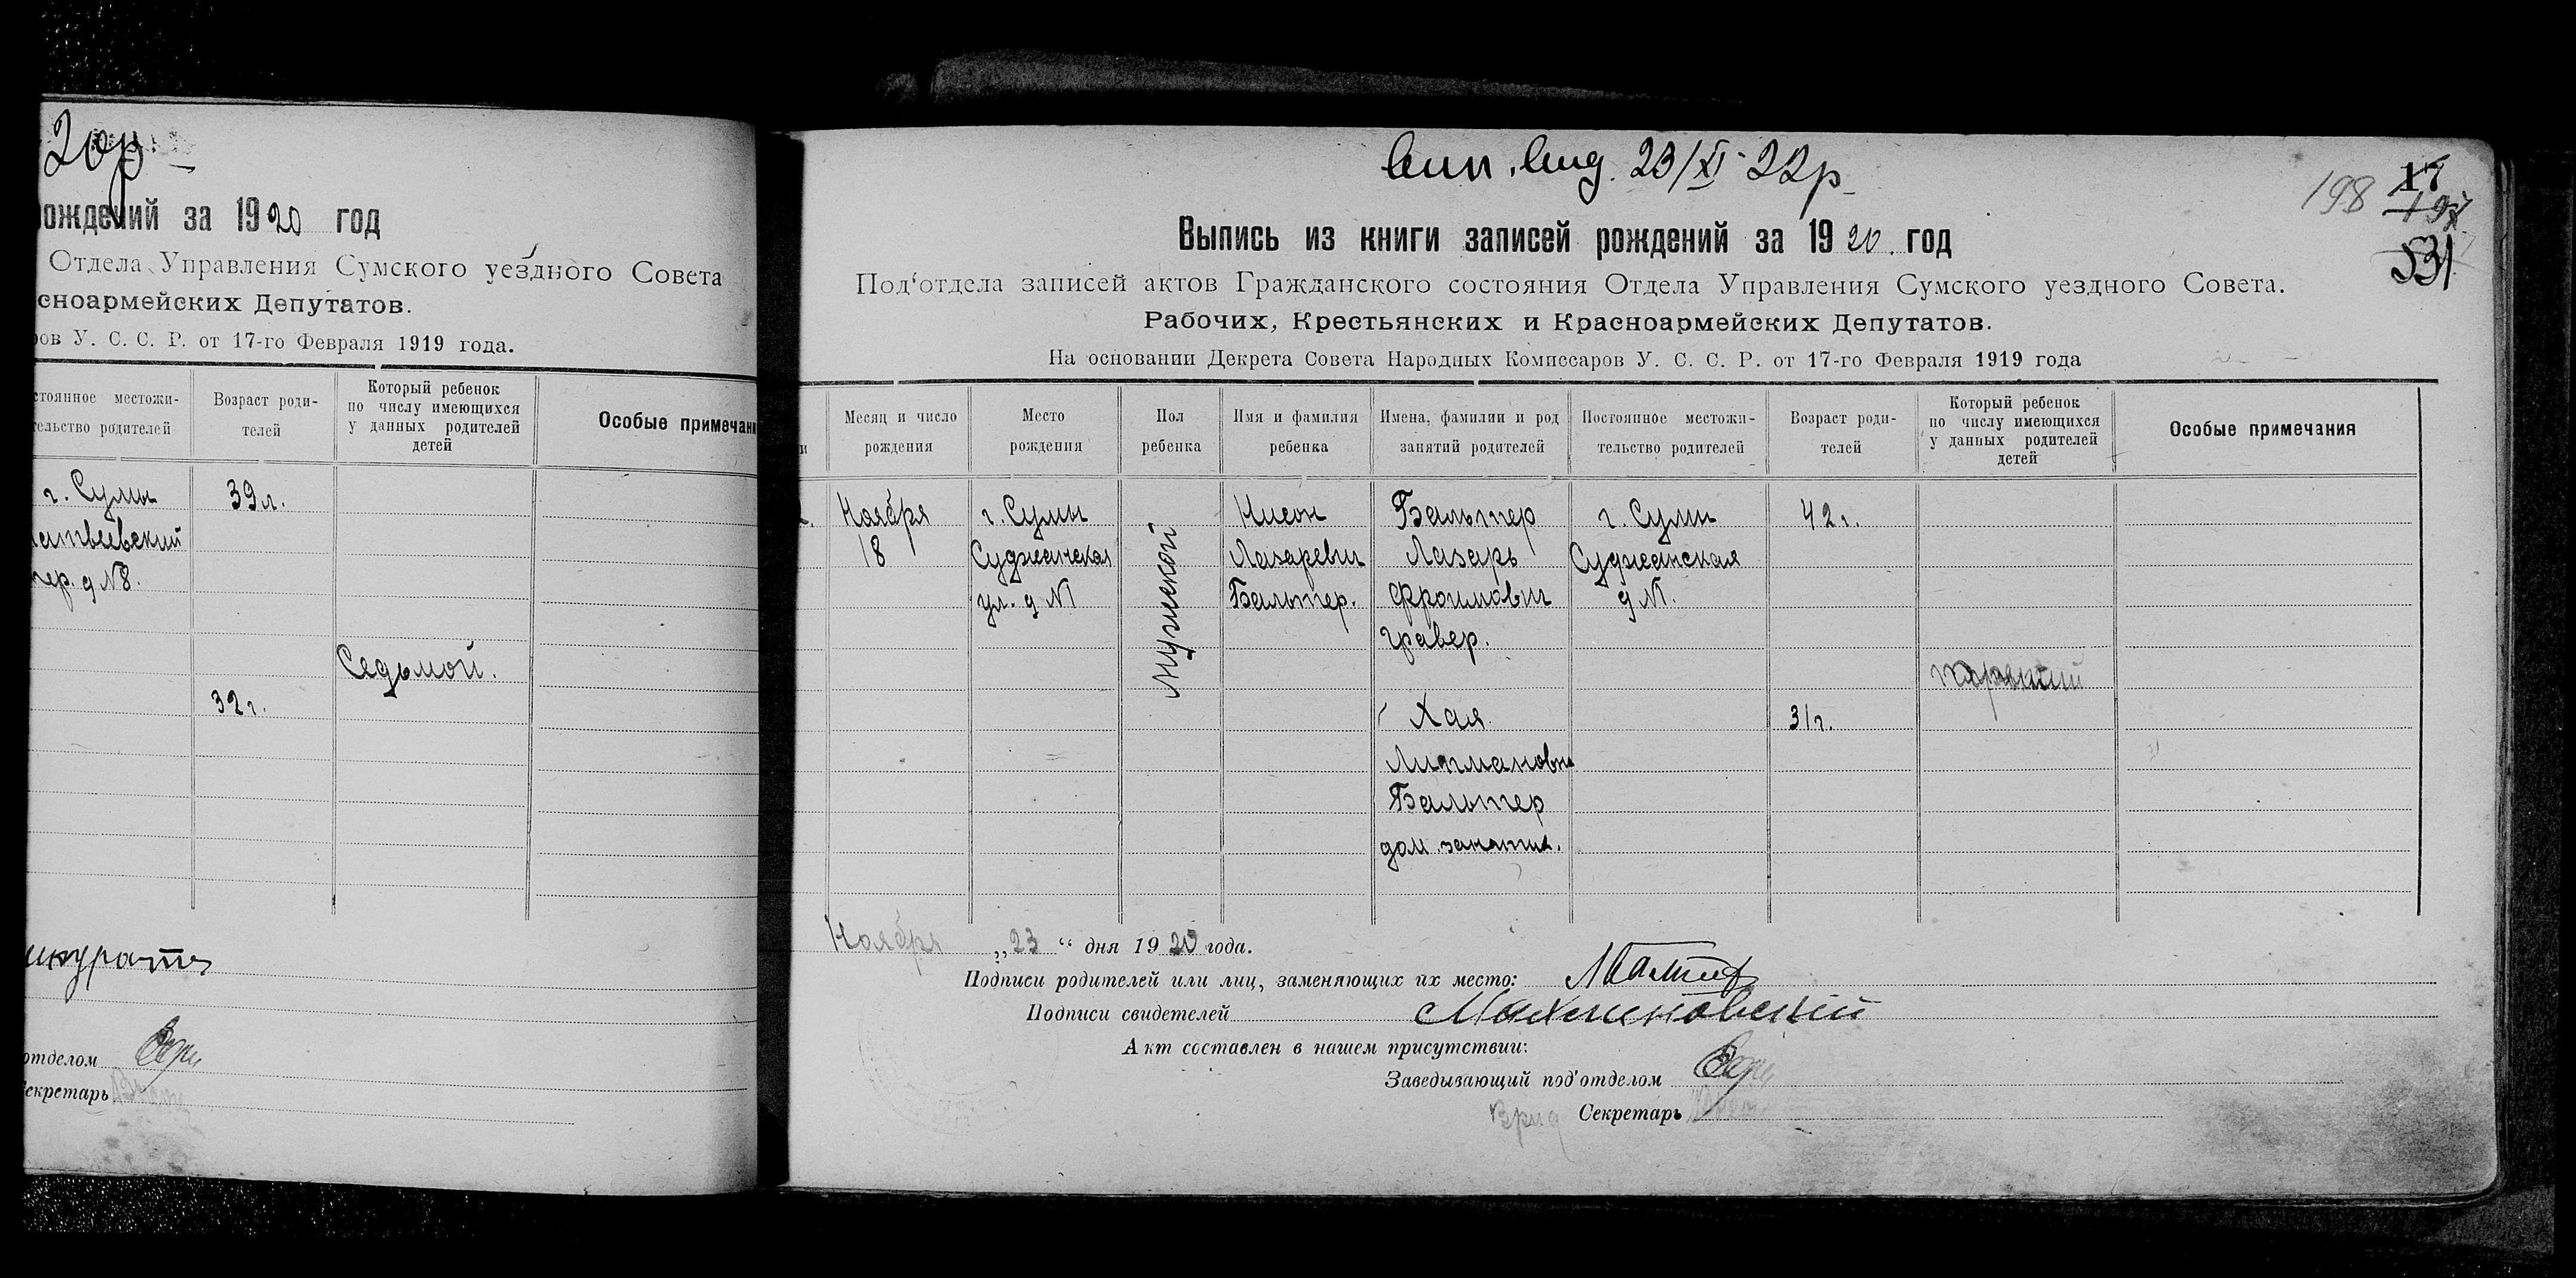 20р.
рождений за 1920 год
Отдела Управления Сумского уездного Совета
сноармейских Депутатов.
ров У. С. С. Р. от 17-го Февраля 1919 года.
стоянное местожи-
тельство родителей
Возраст роди-
телей
Который ребенок
по числу имеющихся
у данных родителей
детей
Особые примечани
г. Сумы
39 л.
пер. д №8.
Седьмой.
32 г.
отделом
Секретарь
23/XI 22р.
198
17
197
531
Выпись из книги записей рождений за 1920 год
Под'отдела записей актов Гражданского состояния Отдела Управления Сумского уездного Совета.
Рабочих, Крестьянских и Красноармейских Депутатов.
На основании Декрета Совета Народных Комиссаров У. С. С. Р. от 17-го Февраля 1919 года
Месяц и число
рождения
Место
рождения
Пол
ребенка
Имя и фамилия
ребенка
Имена, фамилии и род
занятий родителей
Постоянное местожи-
тельство родителей
Возраст роди-
телей
Который ребенок
по числу имеющихся
у данных родителей
детей
Особые примечания
Ноября
18
г. Сумы
Суджанская
ул. д №1
мужской
Нисон
Лазаревич
Бальтер.
Бальтер
Лазарь
Фроимович
гравер.
Хая
Липмановна
Бальтер
дом. занятия.
г. Сумы
Суджанская
д №1.
42 г.
31 г.
Ноября „23“ дня 1920 года.
Подписи родителей или лиц, заменяющих их место:
Подписи свидетелей
Акт составлен в нашем присутствии:
Заведывающий под'отделом
Врид Секретарь